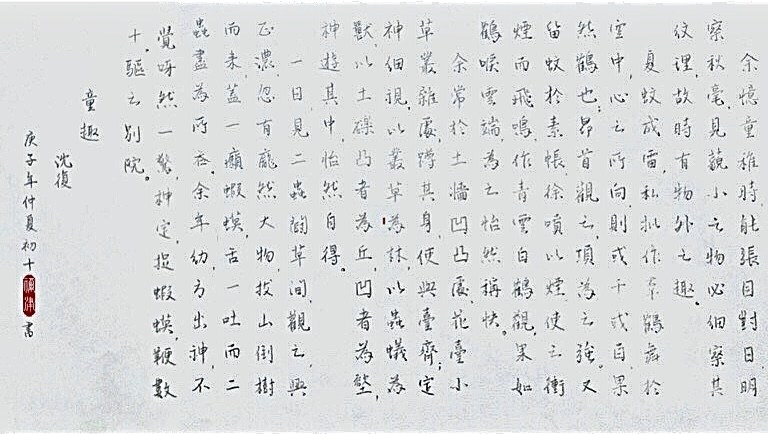 余憶童稚時,能張目對日,明
察秋毫,見藐小之物必細察其
紋理,故時有物外之趣。
夏蚊成雷,私拟作羣鶴舞於
空中,心之所向,則或千或百,果
然鶴也;昂首觀之,項為之強。又
留蚊於素帳,徐噴以煙,使之衝
煙而飛鳴,作青雲白鶴觀,果如
鶴唳雲端,為之怡然稱快。
余常於土牆凹凸處,花臺小
草叢雜處,蹲其身,使與臺齊;定
神細視,以叢草為林,以蟲蟻為
獸,以土礫凸者為丘,凹者為壑,
神遊其中,怡然自得。
一日見二蟲鬪草間,觀之,興
正濃,忽有龐然大物,拔山倒樹
而來,蓋一癩蝦蟆,舌一吐而二
蟲盡為所吞,余年幼,方出神,不
覺呀然一驚,神定,捉蝦蟆,鞭數
十,驅之別院。
童趣
沈復
庚子年仲夏初十 書